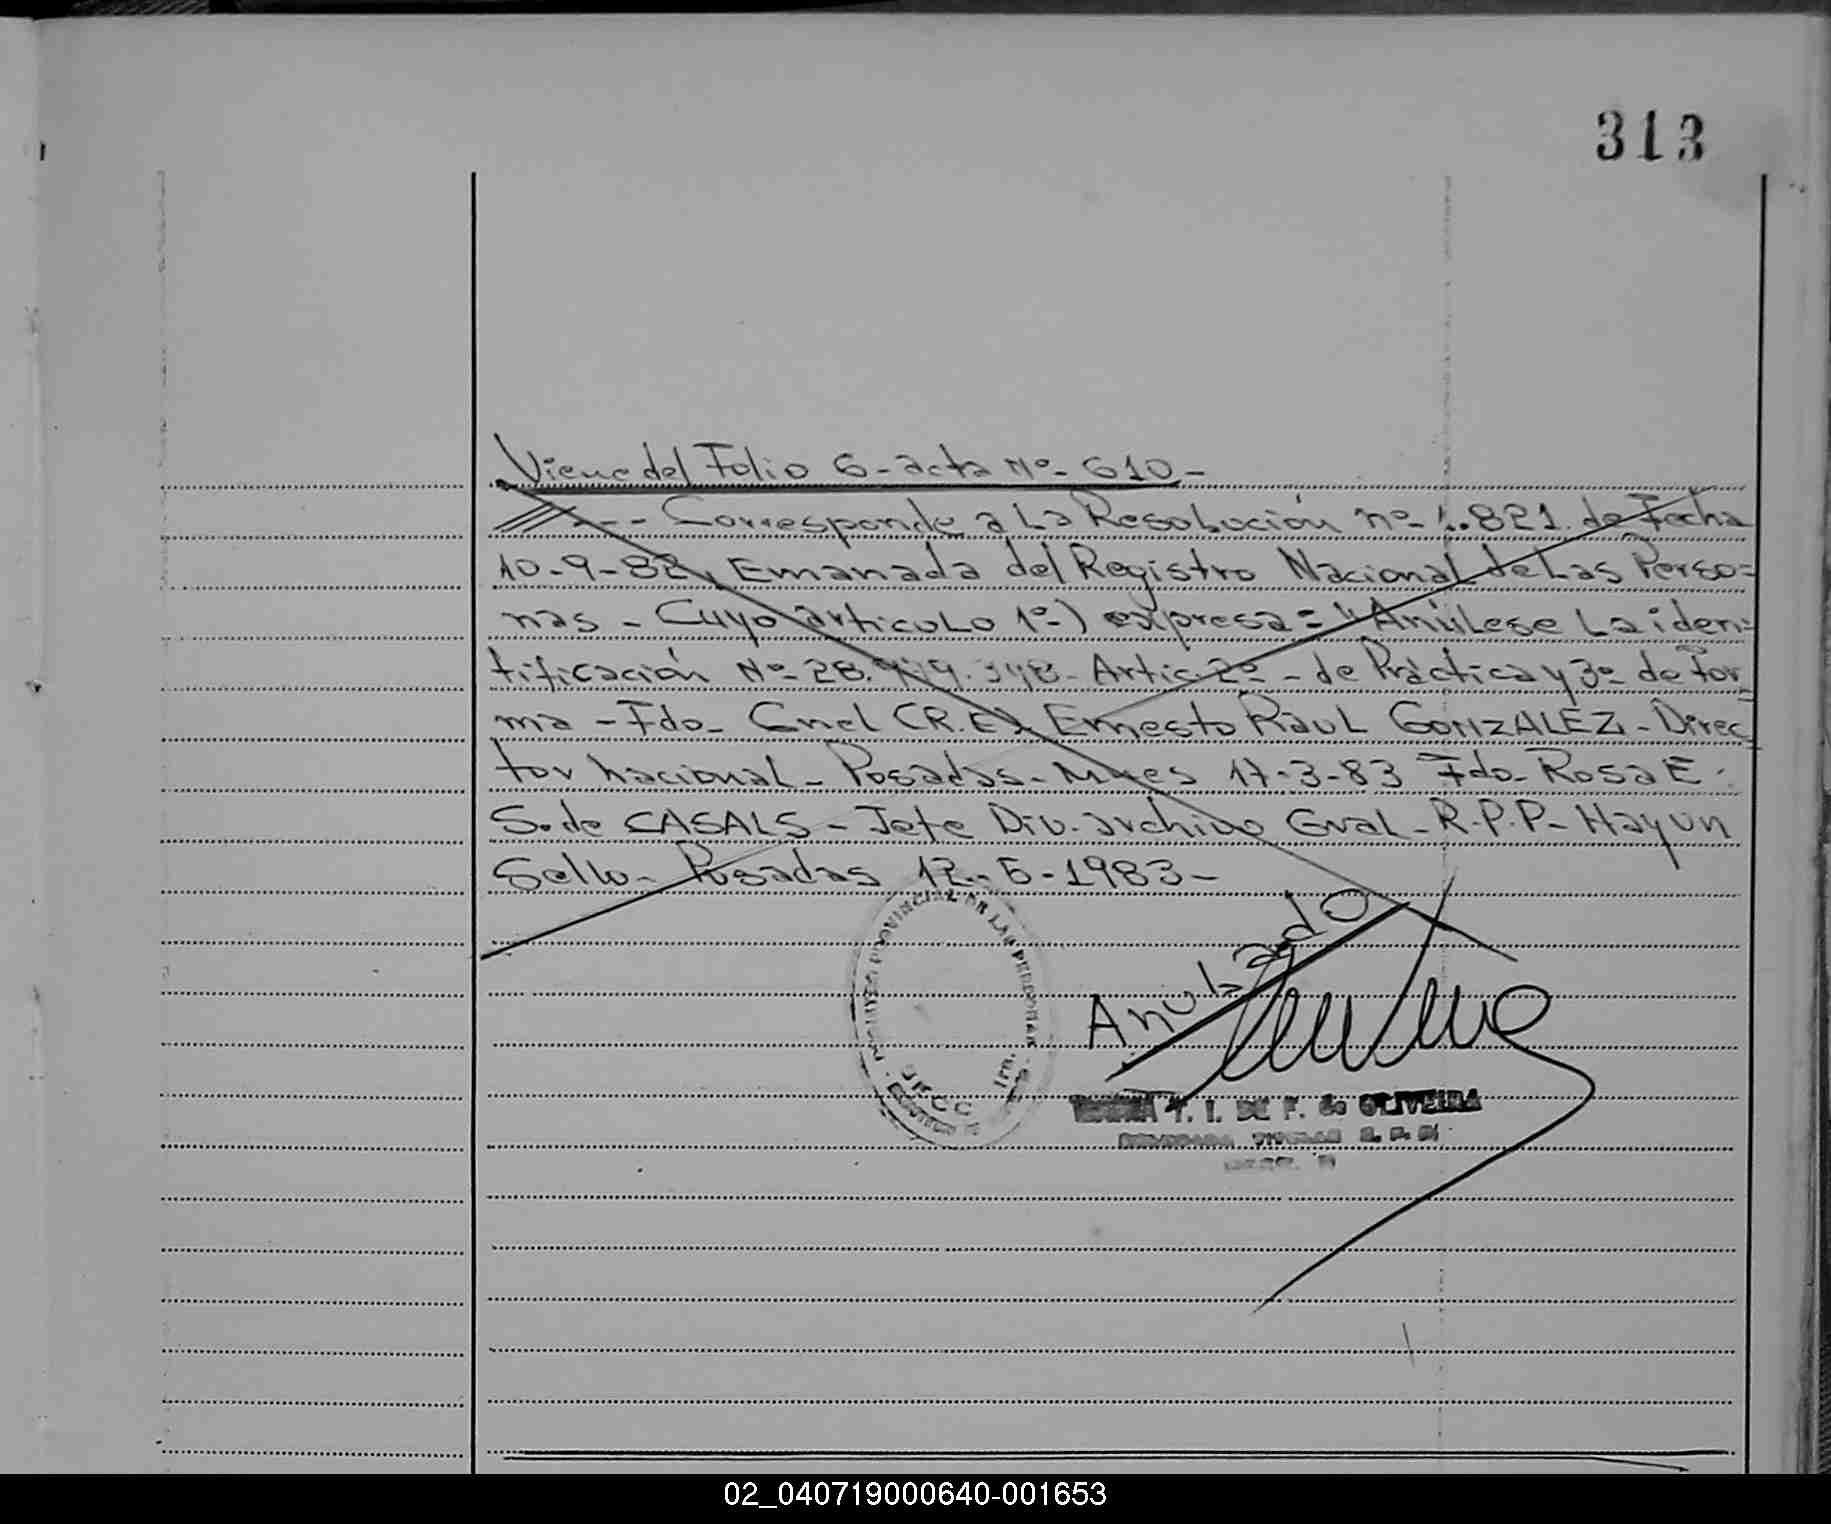 313
Viene del Folio 6 - acta Nº - 610 -
/// - - - Corresponde a La Resolución nº - 1.821. de Fecha
10-9-82, Emanada del Registro Nacional de Las Perso=
nas - Cuyo articulo 1º-) expresa = "Anúlese La iden=
tificación Nº - 28. - Artic. 2º - de Práctica y 3º de for=
ma - Fdo - Cnel CR.E) Ernesto Raul GONZALEZ - Direc=
tor nacional - Posadas - Mnes 17-3-83 Fdo - Rosa E.
S. de CASALS - Jefe Div. archivo Gral - R.P.P - Hay un
Sello - Posadas 12 - 5 - 1983 -
Anulado
REGISTRO PROVINCIAL DE LAS PERSONAS
T. I. DE F. de OLIVEIRA
02_040719000640-001653